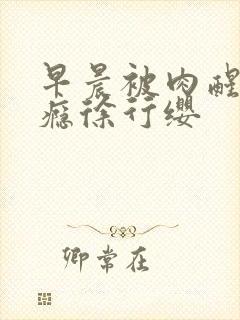 早晨被肉醒
瘾徐行缨
卿常在